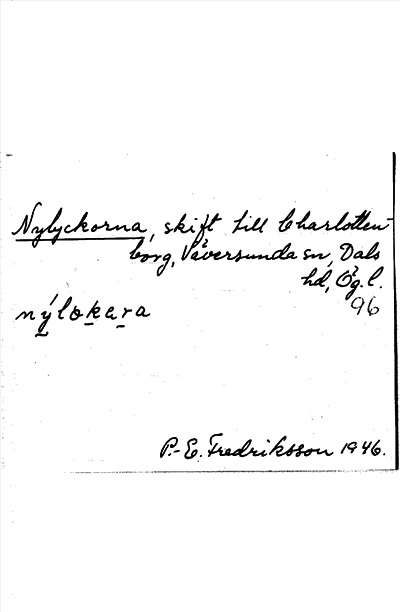 Nylyckorna, skift till Charlotten-
borg, Väversunda sn, Dals
hd, Ög. l.
96
nýlokara
P.-E. Fredriksson 1946.